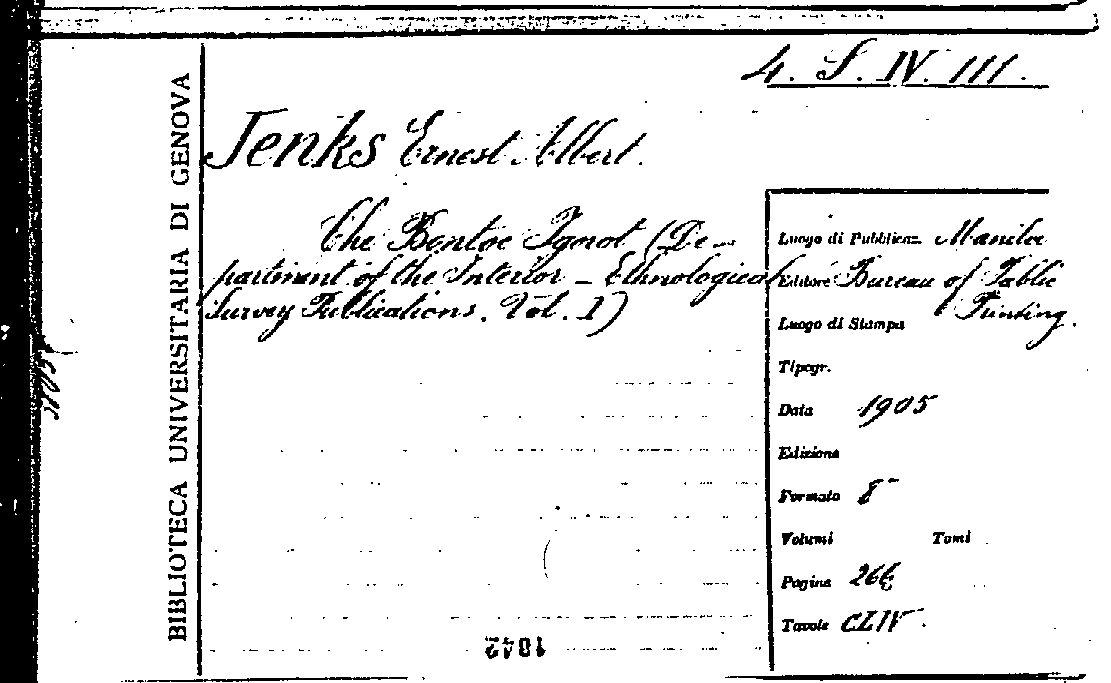 4. S. IV. 111.
BIBLIOTECA UNIVERSITARIA DI GENOVA
Jenks Ernest Albert.
The Bontoc Igorot (De-
partment of the Interior - Ethnological
Survey Publications. Vol. I)
Luogo di Pubblicaz. Manila
Editore Bureau of Public
Printing.
Luogo di Stampa
Tipogr.
Data 1905
Edizione
Formato 8°
Volumi Tomi
Pagine 266
Tavole CLIV.
1842